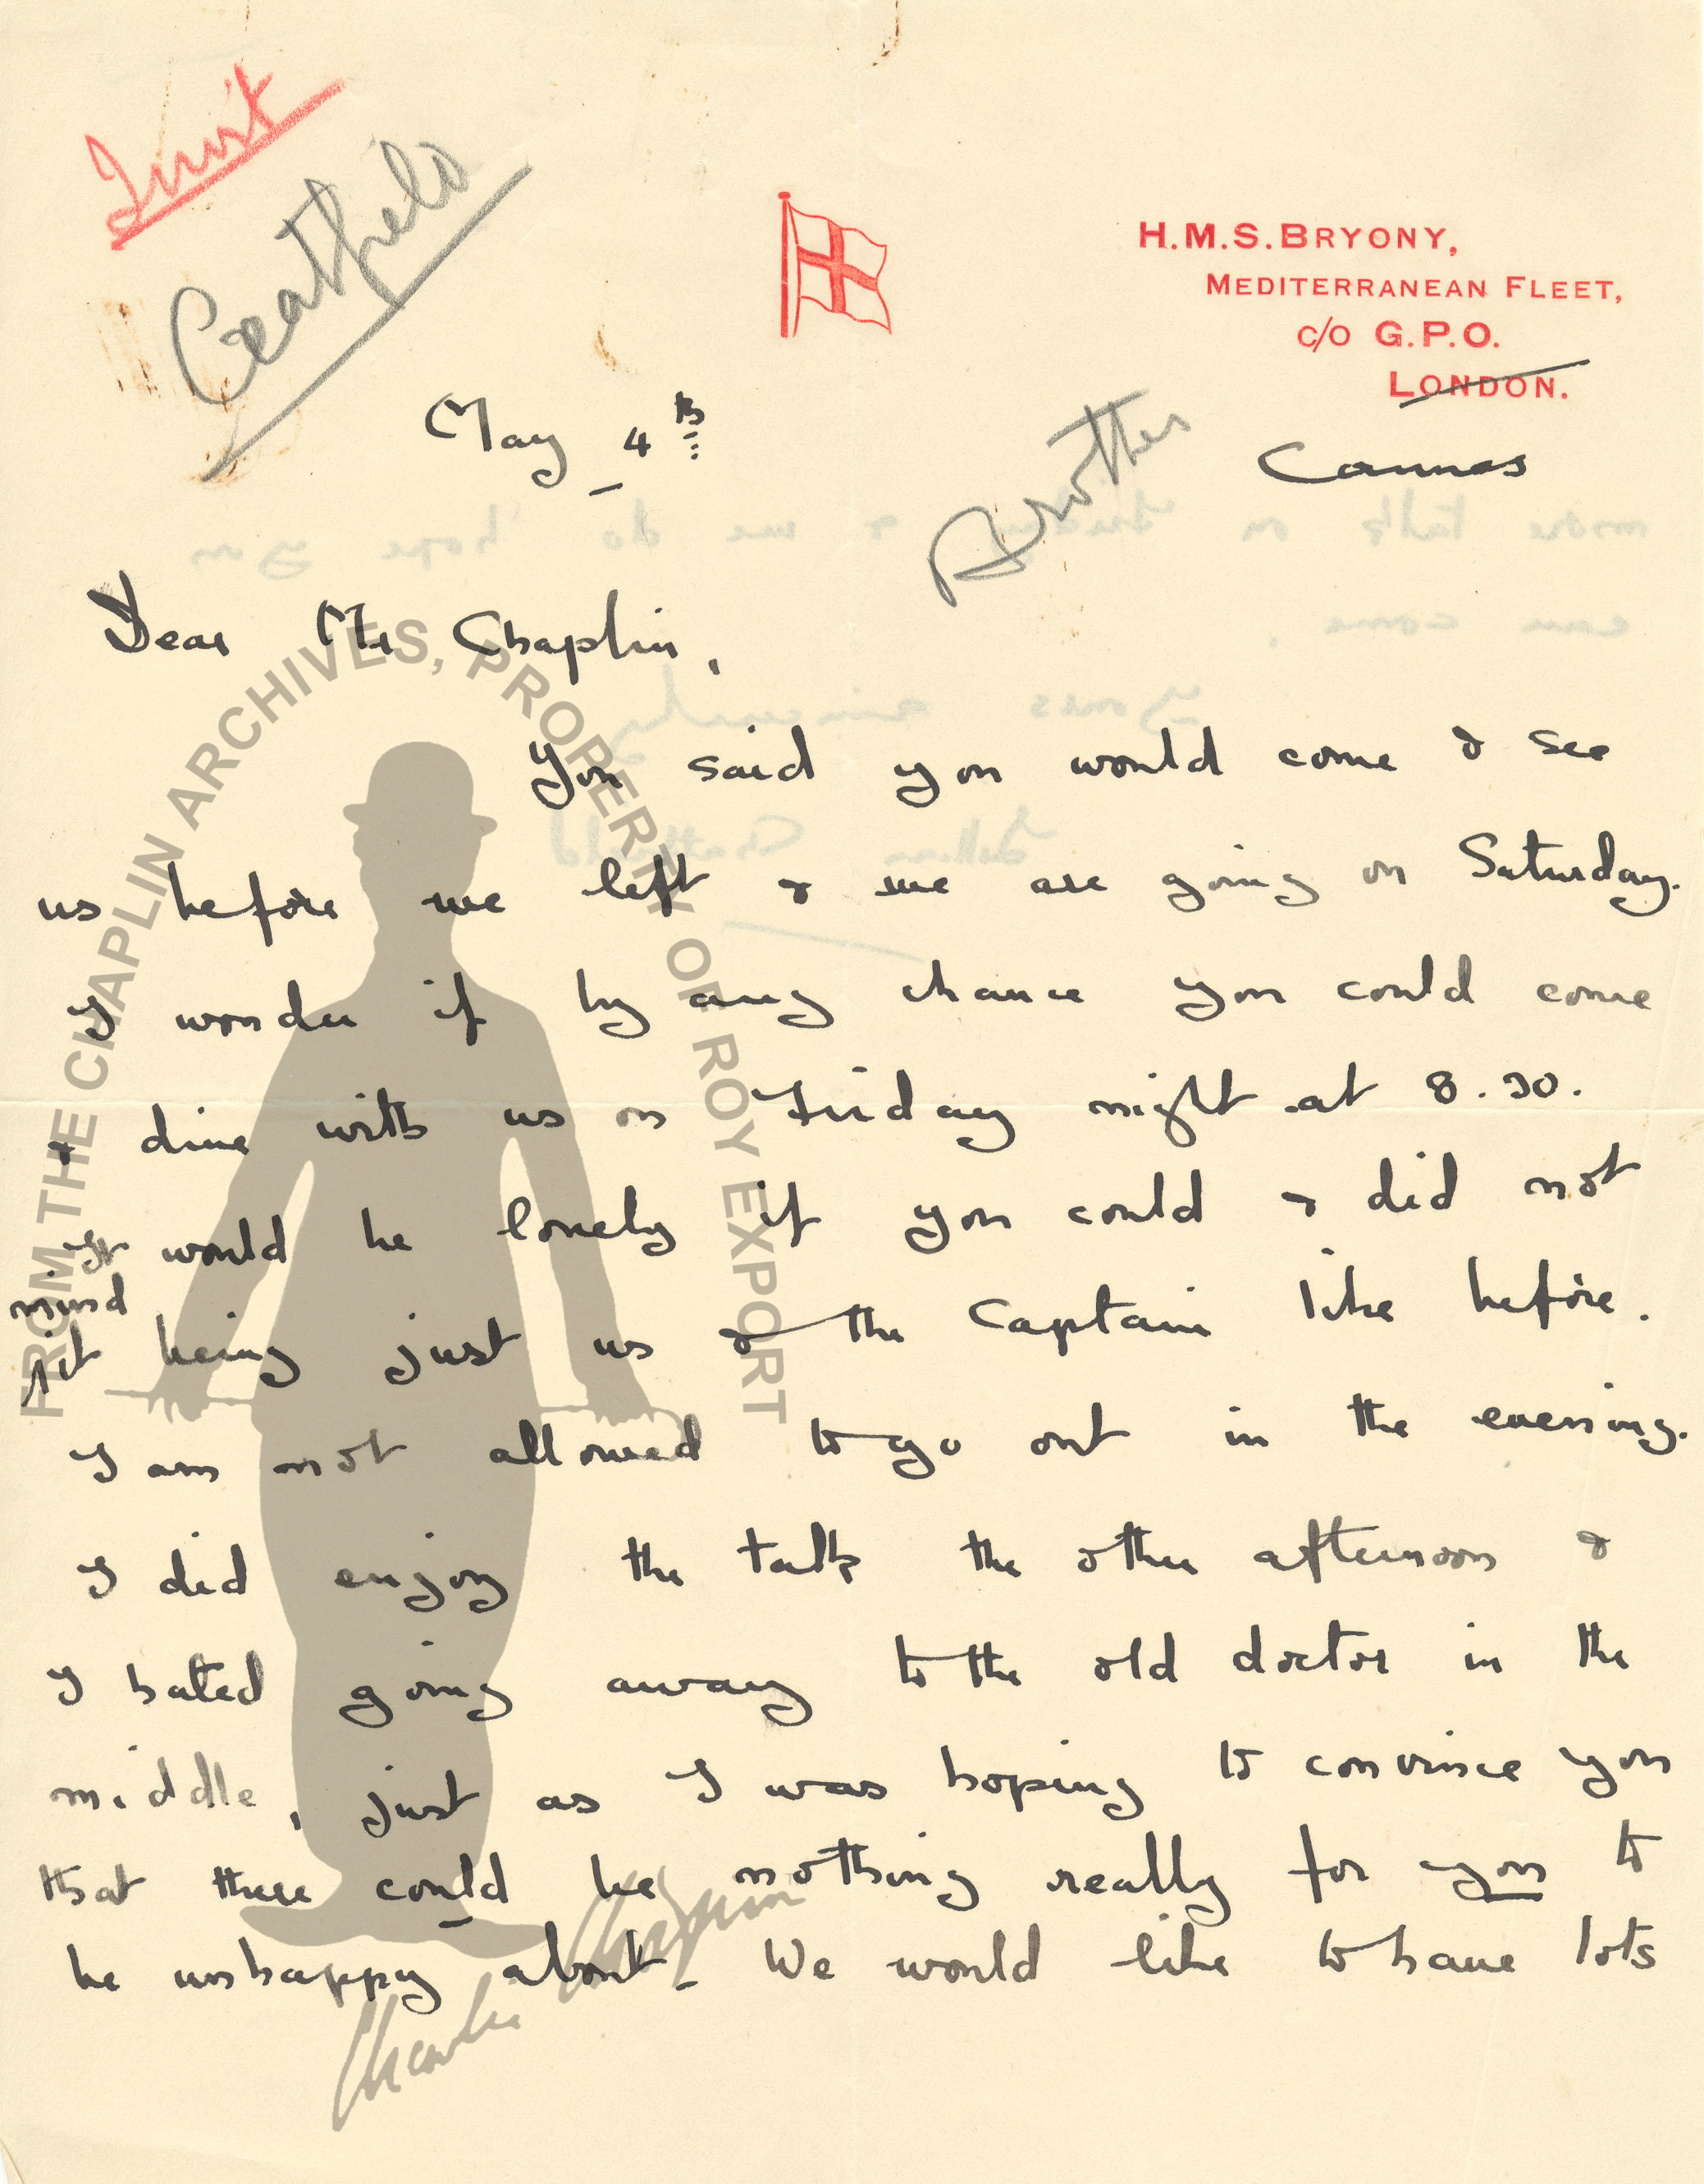 H.M.S. BRYONY,
MEDITERRANEAN FLEET,
C/O G.P.O.
LONDON.
Cannes
Chatfield
Brother
May 4th
Dear Mr Chaplin,
You said you would come & see
us before we left & we are going on Saturday.
I wonder if by any chance you could come
& dine with us on Friday night at 8.30.
It would be lovely if you could & did not
mind
it being just us & the Captain like before.
I am not allowed to go out in the evening.
I did enjoy the talk the other afternoon &
I hated going away to the old doctor in the
middle, just as I was hoping to convince you
that there could be nothing really for you to
be unhappy about - We would like to have lots
FROM THE CHAPLIN ARCHIVES, PROPERTY OF ROY EXPORT
Charlie Chaplin